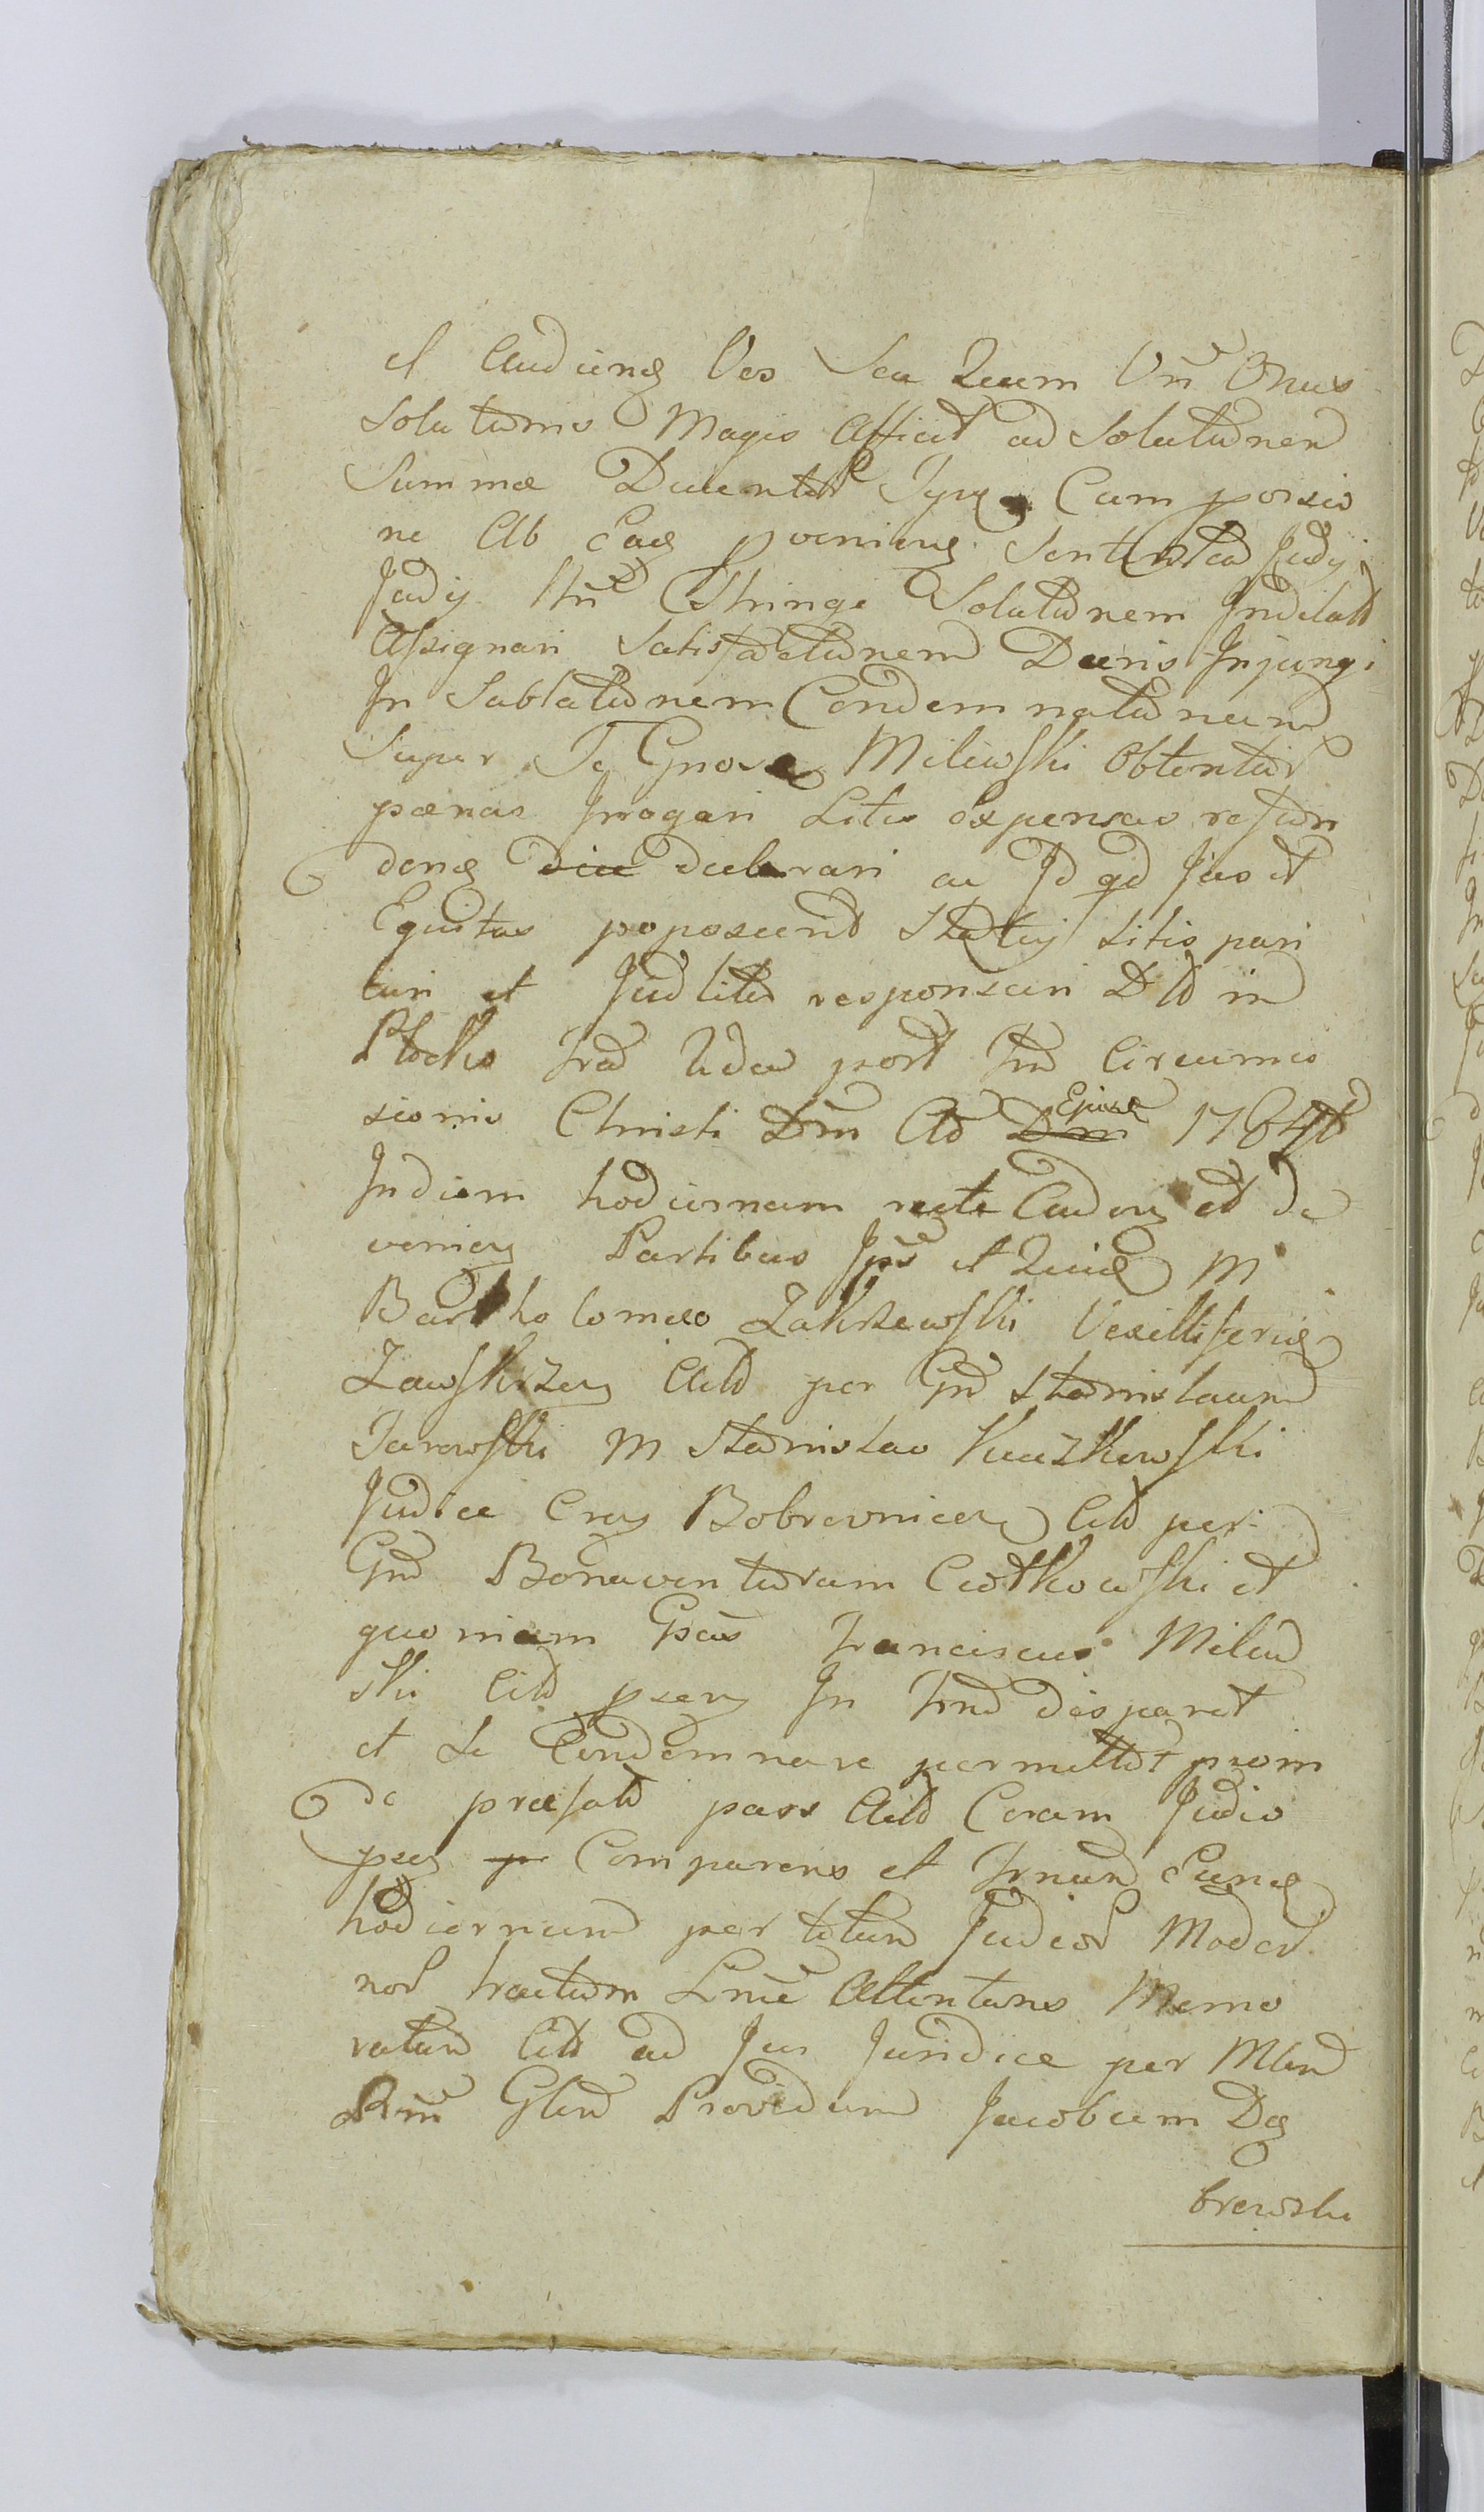 et Audiend Vos Seu Quem Vrm Onus
Solutionis Magis Afficit ad Solutionem
Summæ Ducentor Tynf Cum provisio
ne Ab Ead proveniend Sententia Judy
Judij Hui Astringi Solutionem Indilat
Assignari Satisfactionem Decris Injungi
In Sublationem Condemnationum
Super Te Gnose Milewski Obtentar
pænas Irrogari Litis expensas refun
dend declarari ac Id qd Jus et
Equitas poposcerit Statuj Litis pari
turi et Judliter responsuri Dtt in
Plocko fra 2da post fm Circumci
sionis Christi Dni AD Ejusd 1784to
In diem hodiernam recte Caden et de
venien Partibus Ipis et Quid M
Bartholomeo Zakrzewski Vexillifero
Zawskrzen Actt per Gnd Stanislaum
Jarowski M Stanislao Kuczkowski
Judice Cren Bobrovnicen Citt per
Gnd Bonaventuram Ciotkowski et
quoniam Gsus Franciscus Milew
ski Citt psens In Trno disparet
et Se Condemnare permittit proin
de præfatt pars Actt Coram Judio
psen Comparens et Trnum Eund
hodiernum per totum Judior Moder
nor tractum Lnie Attentans Memo
ratum Citt ad Jus Juridice per Mlem
Rni Glem Providum Jacobum Dą
browski